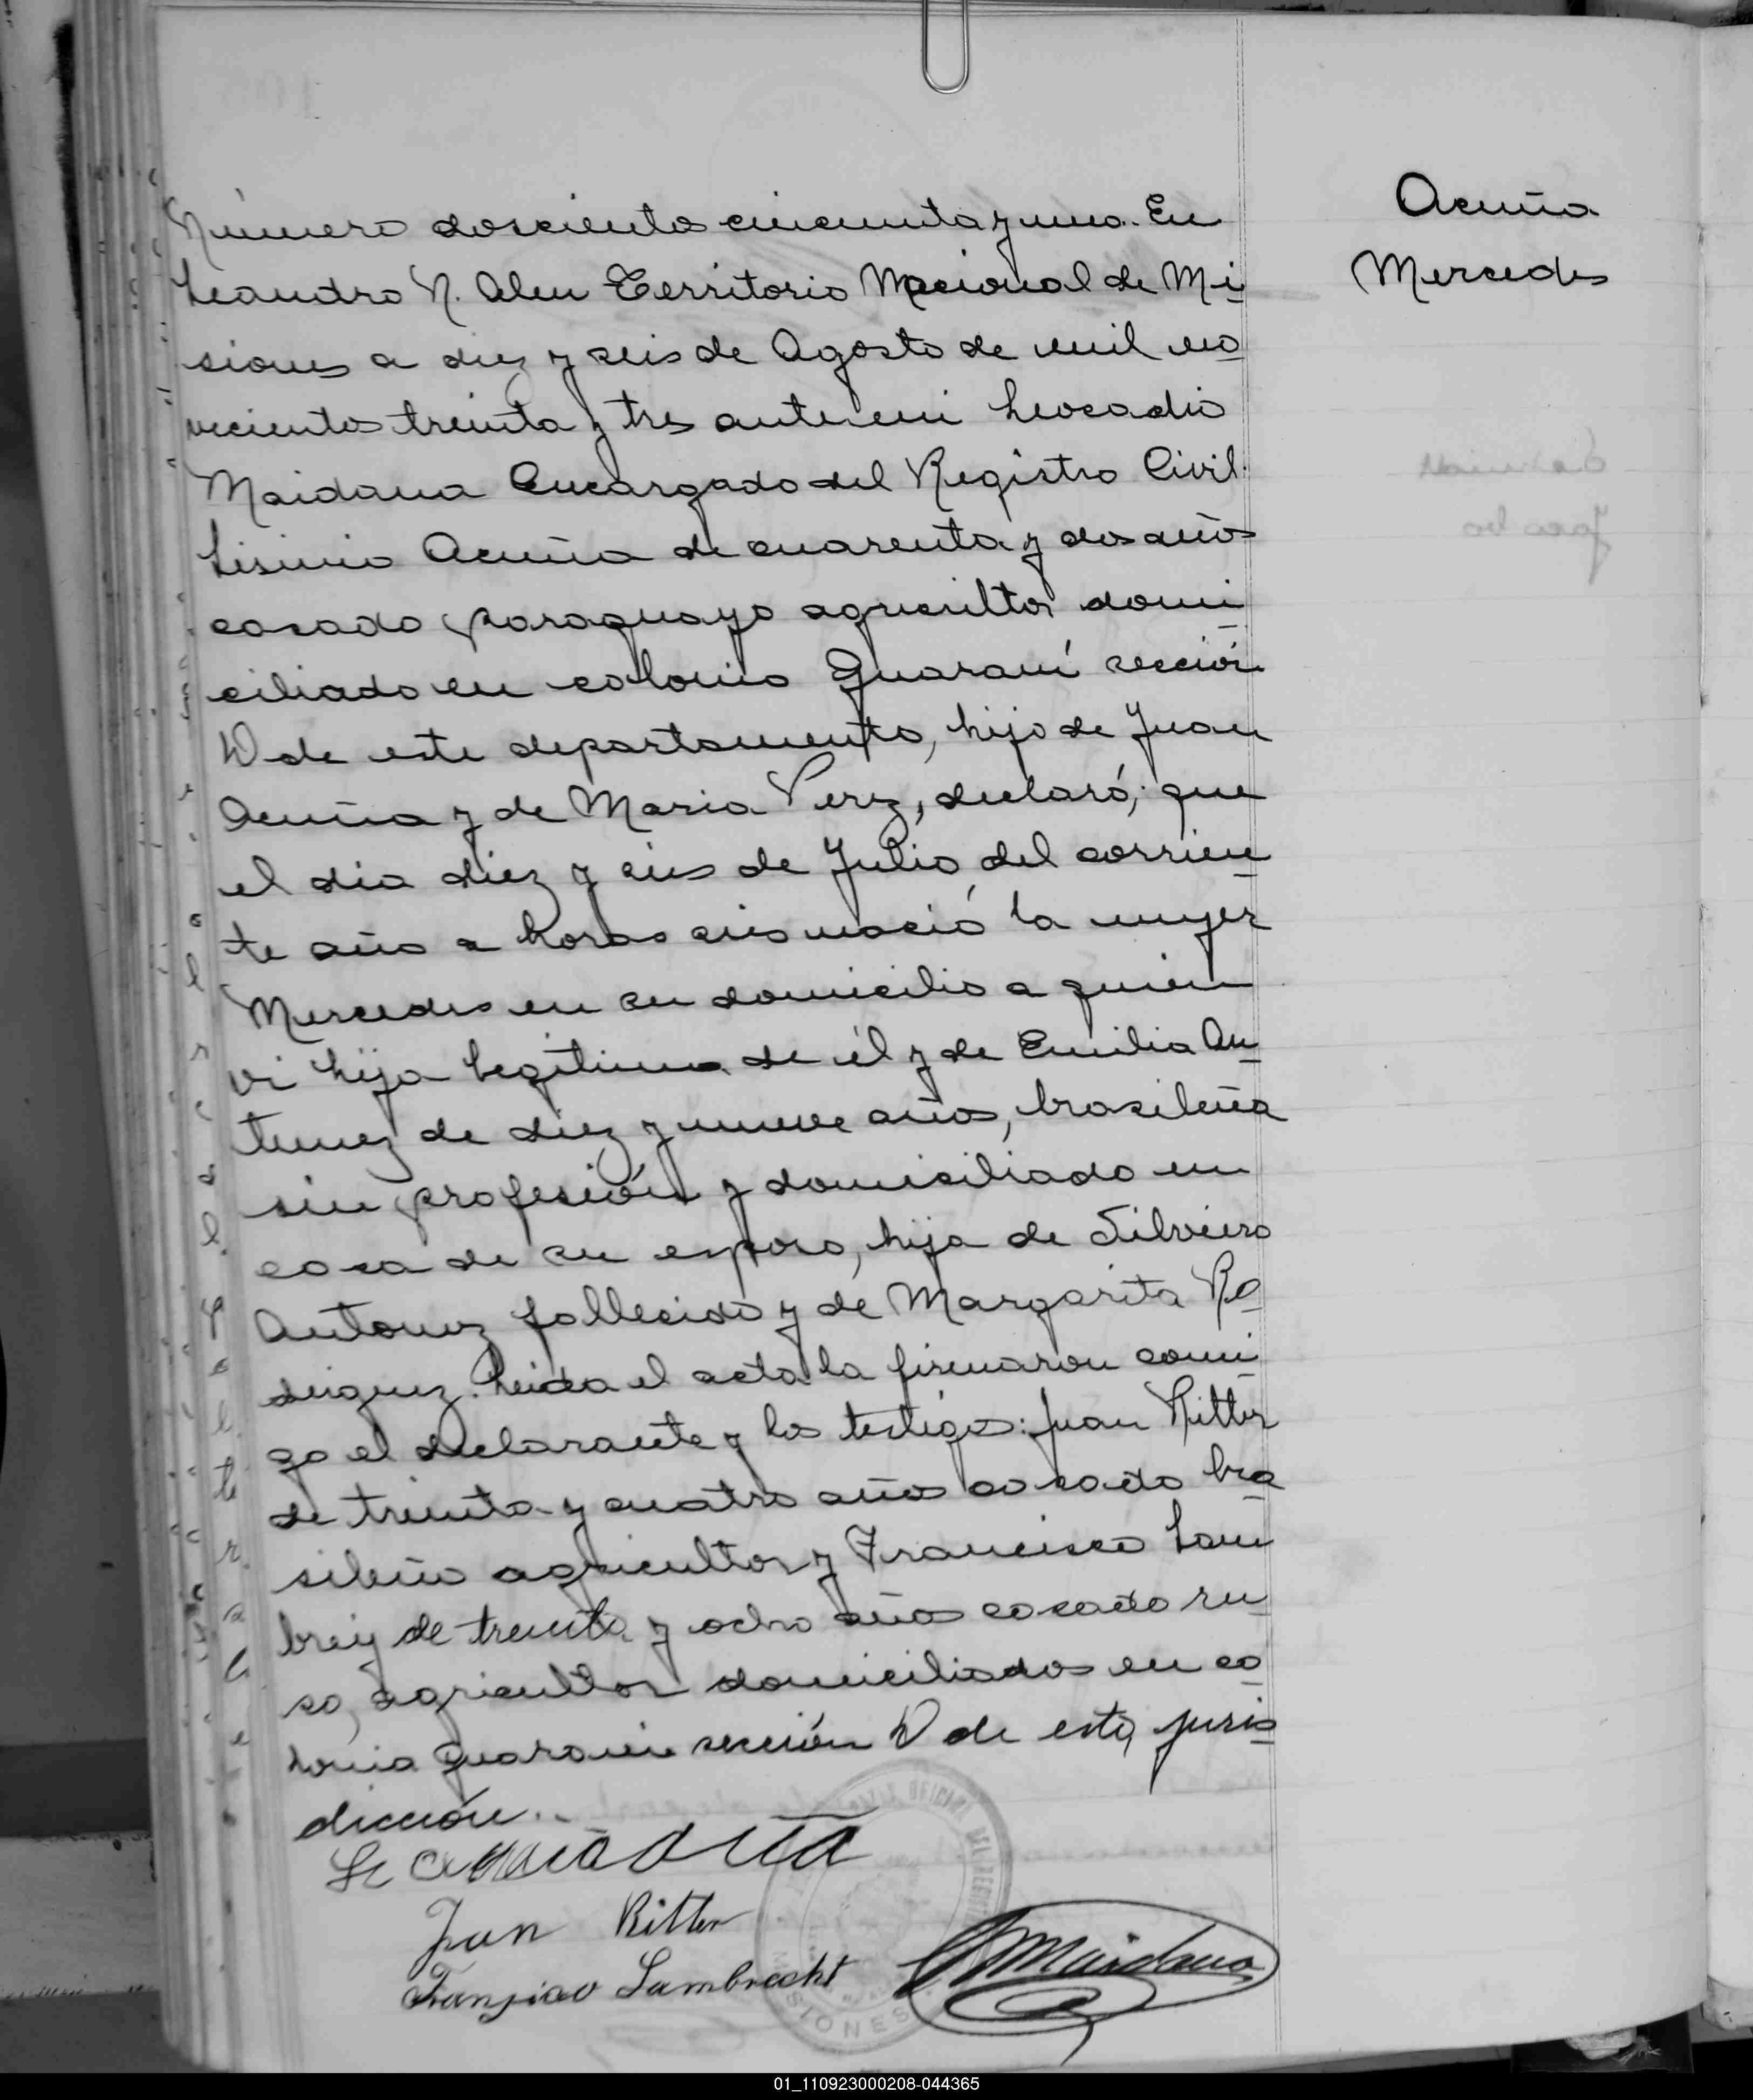 Acuña
Mercedes
Número doscientos cincuenta y uno. En
Leandro N. Alem Territorio Nacional de Mi
siones a diez y seis de Agosto de mil no
vecientos treinta y tres ante mi Leocadio
Maidana Encargado del Registro Civil
Lisinio Acuña de cuarenta y dos años
casado paraguayo agricultor domi
ciliado en colonia Guaraní sección
D de este departamento, hijo de Juan
Acuña y de Maria Perez, declaró; que
el dia diez y seis de Julio del corrien
te año a horas seis nació la mujer
Mercedes en su domicilio a quien
vi hija legitima de él y de Emilia An
tunez de diez y nueve años, brasileña
sin profesión y domiciliado en
casa de su esposo, hija de Silveiro
Antonez fallecido y de Margarita Ro
driguez. Leida el acta la firmaron conmi
go el declarante y los testigos: Juan Ritter
de treinta y cuatro años casado bra
sileño agricultor y Francisco Lam
brej de treinta y ocho años casado ru
so, agricultor domiciliados en co
lonia guarani sección D de esta juris
dicción.
Juan Ritter
Fransisco Lambrecht
Maidana
MISIONES
01_110923000208-044365